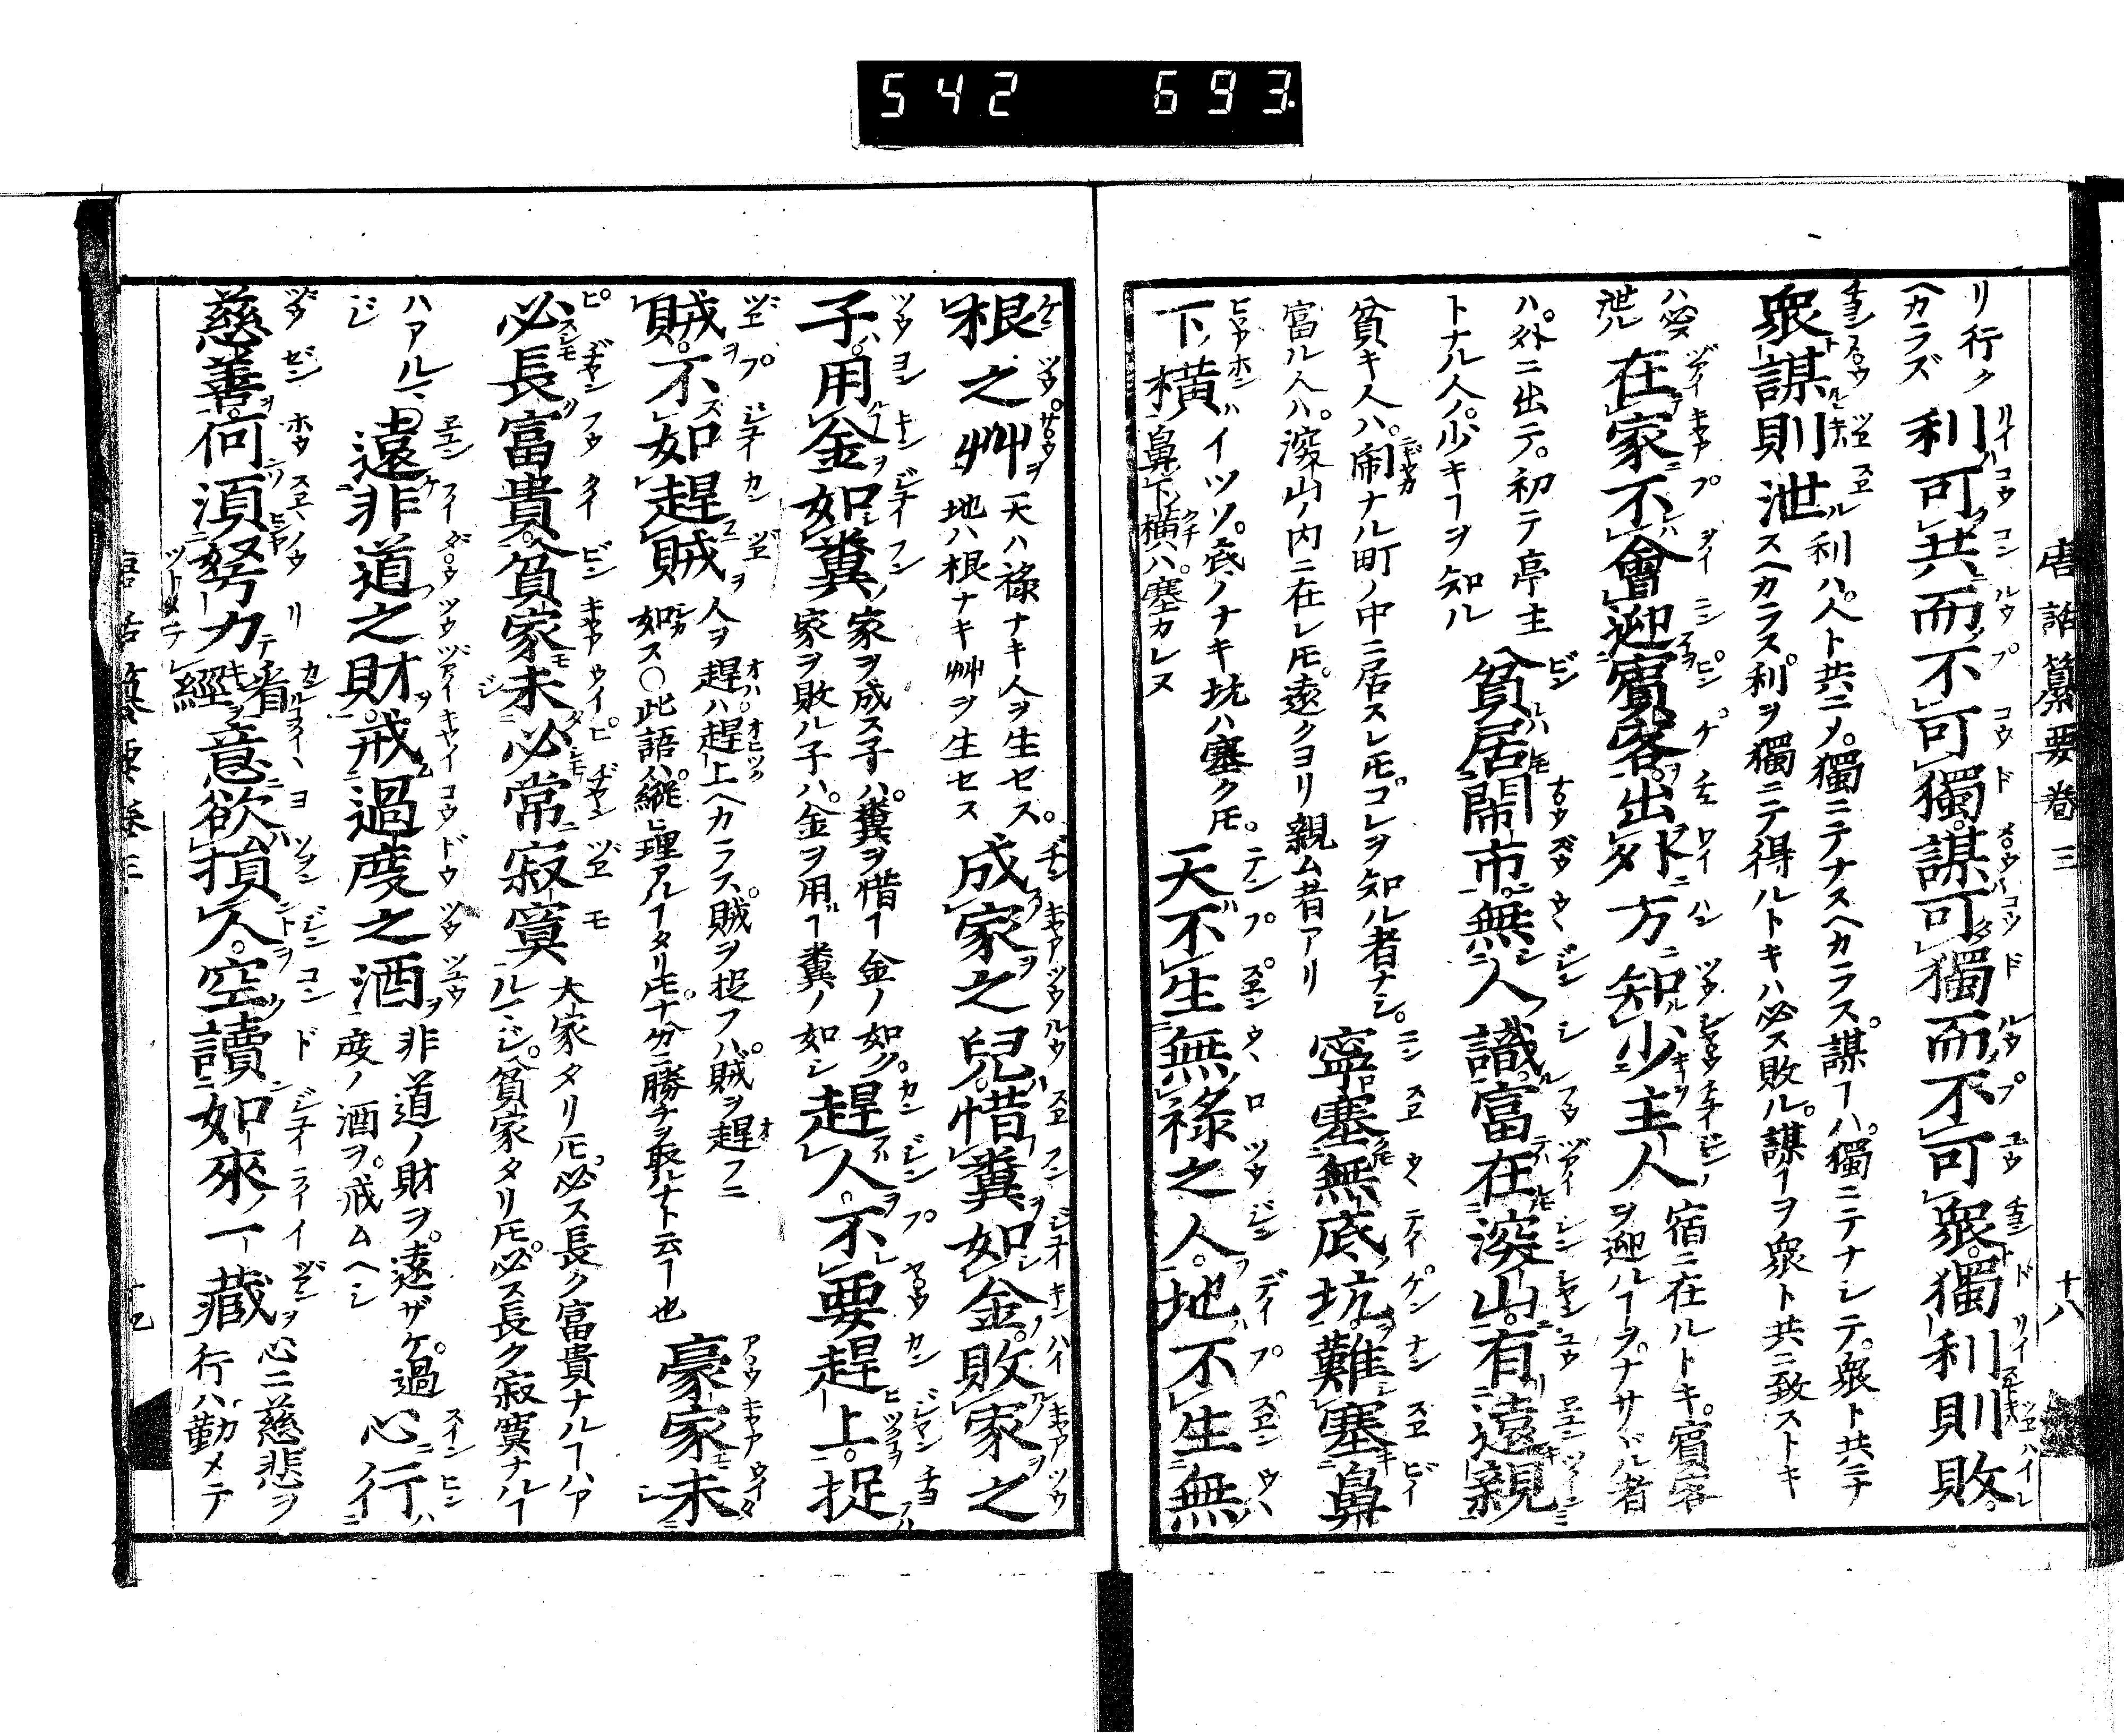 542 693.
唐話纂要卷三 十八
リ行ク
ヘカラズ
利可共而不可獨。謀可獨而不可衆。獨利則敗。
衆謀則泄
利ハ。人ト共ニメ。獨ニテナスヘカラス。謀ヿハ。獨ニテナシテ。衆ト共ニナ
スヘカラス。利ヲ獨ニテ得ルトキハ必ス敗ル。謀ヿヲ衆ト共ニ致ストキ
ハ必ス
泄ル
在家不會迎賓客。出外方知少主人
宿ニ在ルトキ。賓客
ヲ迎ルヿヲ。ナサヾル者
ハ。外ニ出テ。初テ亭主
トナル人ノ。少キヿヲ知ル
貧居鬧市無人識。富在深山有遠親
貧キ人ハ。鬧ナル町ノ中ニ居スレ𪜈。コレヲ知ル者ナシ。
富ル人ハ。深山ノ内ニ在レ𪜈。遠クヨリ親ム者アリ
寧塞無底坑。難塞鼻
下横
イツソ。底ノナキ坑ハ塞ク𪜈。
鼻ノ下ノ横ハ。塞カレヌ
天不生無祿之人。地不生無
根之艸
天ハ祿ナキ人ヲ生セス。
地ハ根ナキ艸ヲ生セス
成家之兒。惜糞如金。敗家之
子。用金如糞
家ヲ成ス子ハ。糞ヲ惜ヿ金ノ如ク。
家ヲ敗ル子ハ。金ヲ用ヿ糞ノ如シ
趕人。不要趕上。捉
賊。不如趕賊
人ヲ趕ハ趕上ヘカラス。賊ヲ捉フハ。賊ヲ趕フニ
如ス〇此語ハ。縱ヒ理アルヿタリ𪜈。十分ニ勝チヲ取ルナト云ヿ也
豪家未
必長富貴。貧家未必常寂寞
大家タリ𪜈。必ス長ク富貴ナルヿハア
ルマジ。貧家タリ𪜈。必ス長ク寂寞ナルヿ
ハアルマ
ジ
遠非道之財。戒過度之酒
非道ノ財ヲ。遠ザケ。過
度ノ酒ヲ。戒ムヘシ
心行
慈善。何須努力看經。意欲損人。空讀如來一藏
心ニ慈悲ヲ
行ハヾ。勤メテ
唐話纂要卷三